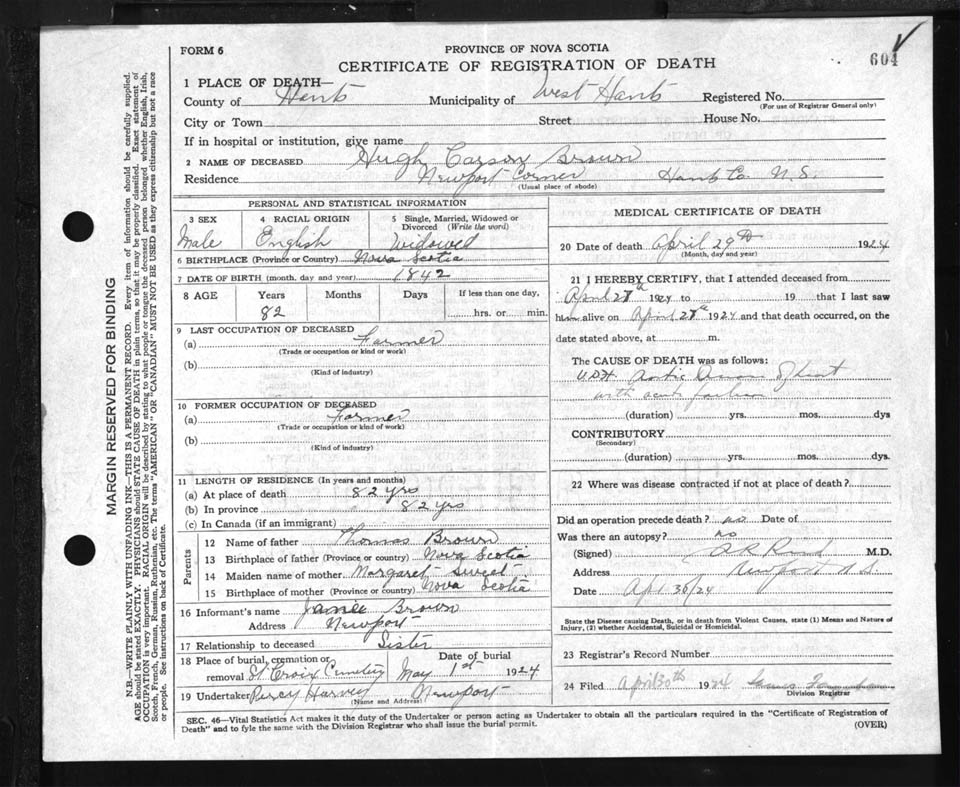 FORM 6
PROVINCE OF NOVA SCOTIA
CERTIFICATE OF REGISTRATION OF DEATH
604
1 PLACE OF DEATH—
County of Hants Municipality of West Hants Registered No.
(For use of Registrar General only)
City or Town Street House No.
If in hospital or institution, give name
2 NAME OF DECEASED Hugh Carson Brown
Residence Newport Corner Hants Co. N.S.
(Usual place of abode)
PERSONAL AND STATISTICAL INFORMATION
3 SEX 4 RACIAL ORIGIN 5 Single, Married, Widowed or
Divorced (Write the word)
Male English Widowed
6 BIRTHPLACE (Province or Country) Nova Scotia
7 DATE OF BIRTH (month, day and year) 1842
8 AGE Years Months Days If less than one day,
82 hrs. or min.
9 LAST OCCUPATION OF DECEASED
(a) Farmer
(Trade or occupation or kind or work)
(b)
(Kind of industry)
10 FORMER OCCUPATION OF DECEASED
(a) Farmer
(Trade or occupation or kind or work)
(b)
(Kind of industry)
11 LENGTH OF RESIDENCE (In years and months)
(a) At place of death 82 yrs
(b) In province 82 yrs
(c) In Canada (if an immigrant)
Parents
12 Name of father Thomas Brown
13 Birthplace of father (Province or country) Nova Scotia
14 Maiden name of mother Margaret Sweet
15 Birthplace of mother (Province or country) Nova Scotia
16 Informant's name Brown
Address Newport
17 Relationship to deceased Sister
18 Place of burial, cremation or Date of burial
removal St Croix Cemetery May 1st 1924
19 Undertaker Percy Harvey Newport
(Name and Address)
MEDICAL CERTIFICATE OF DEATH
20 Date of death April 29th 1924
(Month, day and year)
21 I HEREBY CERTIFY, that I attended deceased from
April 1924 to 19 that I last saw
him alive on April 1924 and that death occurred, on the
date stated above, at m.
The CAUSE OF DEATH was as follows:
Aortic
with
(duration) yrs. mos. dys
CONTRIBUTORY
(Secondary)
(duration) yrs. mos. dys
22 Where was disease contracted if not at place of death?
Did an operation precede death? no Date of
Was there an autopsy? no
(Signed) M.D.
Address Newport N S
Date Apr 30/24
State the Disease causing Death, or in death from Violent Causes, state (1) Means and Nature of
Injury, (2) whether Accidental, Suicidal or Homicidal.
23 Registrar's Record Number
24 Filed April 30th 1924
Division Registrar
SEC. 46—Vital Statistics Act makes it the duty of the Undertaker or person acting as Undertaker to obtain all the particulars required in the "Certificate of Registration of
Death" and to fyle the same with the Division Registrar who shall issue the burial permit. (OVER)
MARGIN RESERVED FOR BINDING
N.B.—WRITE PLAINLY WITH UNFADING INK—THIS IS A PERMANENT RECORD. Every item of information should be carefully supplied.
AGE should be stated EXACTLY. PHYSICIANS should STATE CAUSE OF DEATH in plain terms, so that it may be properly classified. Exact statement of
OCCUPATION is very important. RACIAL ORIGIN will be described by stating to what people or tongue the deceased person belonged, whether English, Irish,
Scotch, French, German, Russian, Ruthenian, etc. The terms "AMERICAN" OR "CANADIAN" MUST NOT BE USED as they express citizenship but not a race
or people. See instructions on back of Certificate.